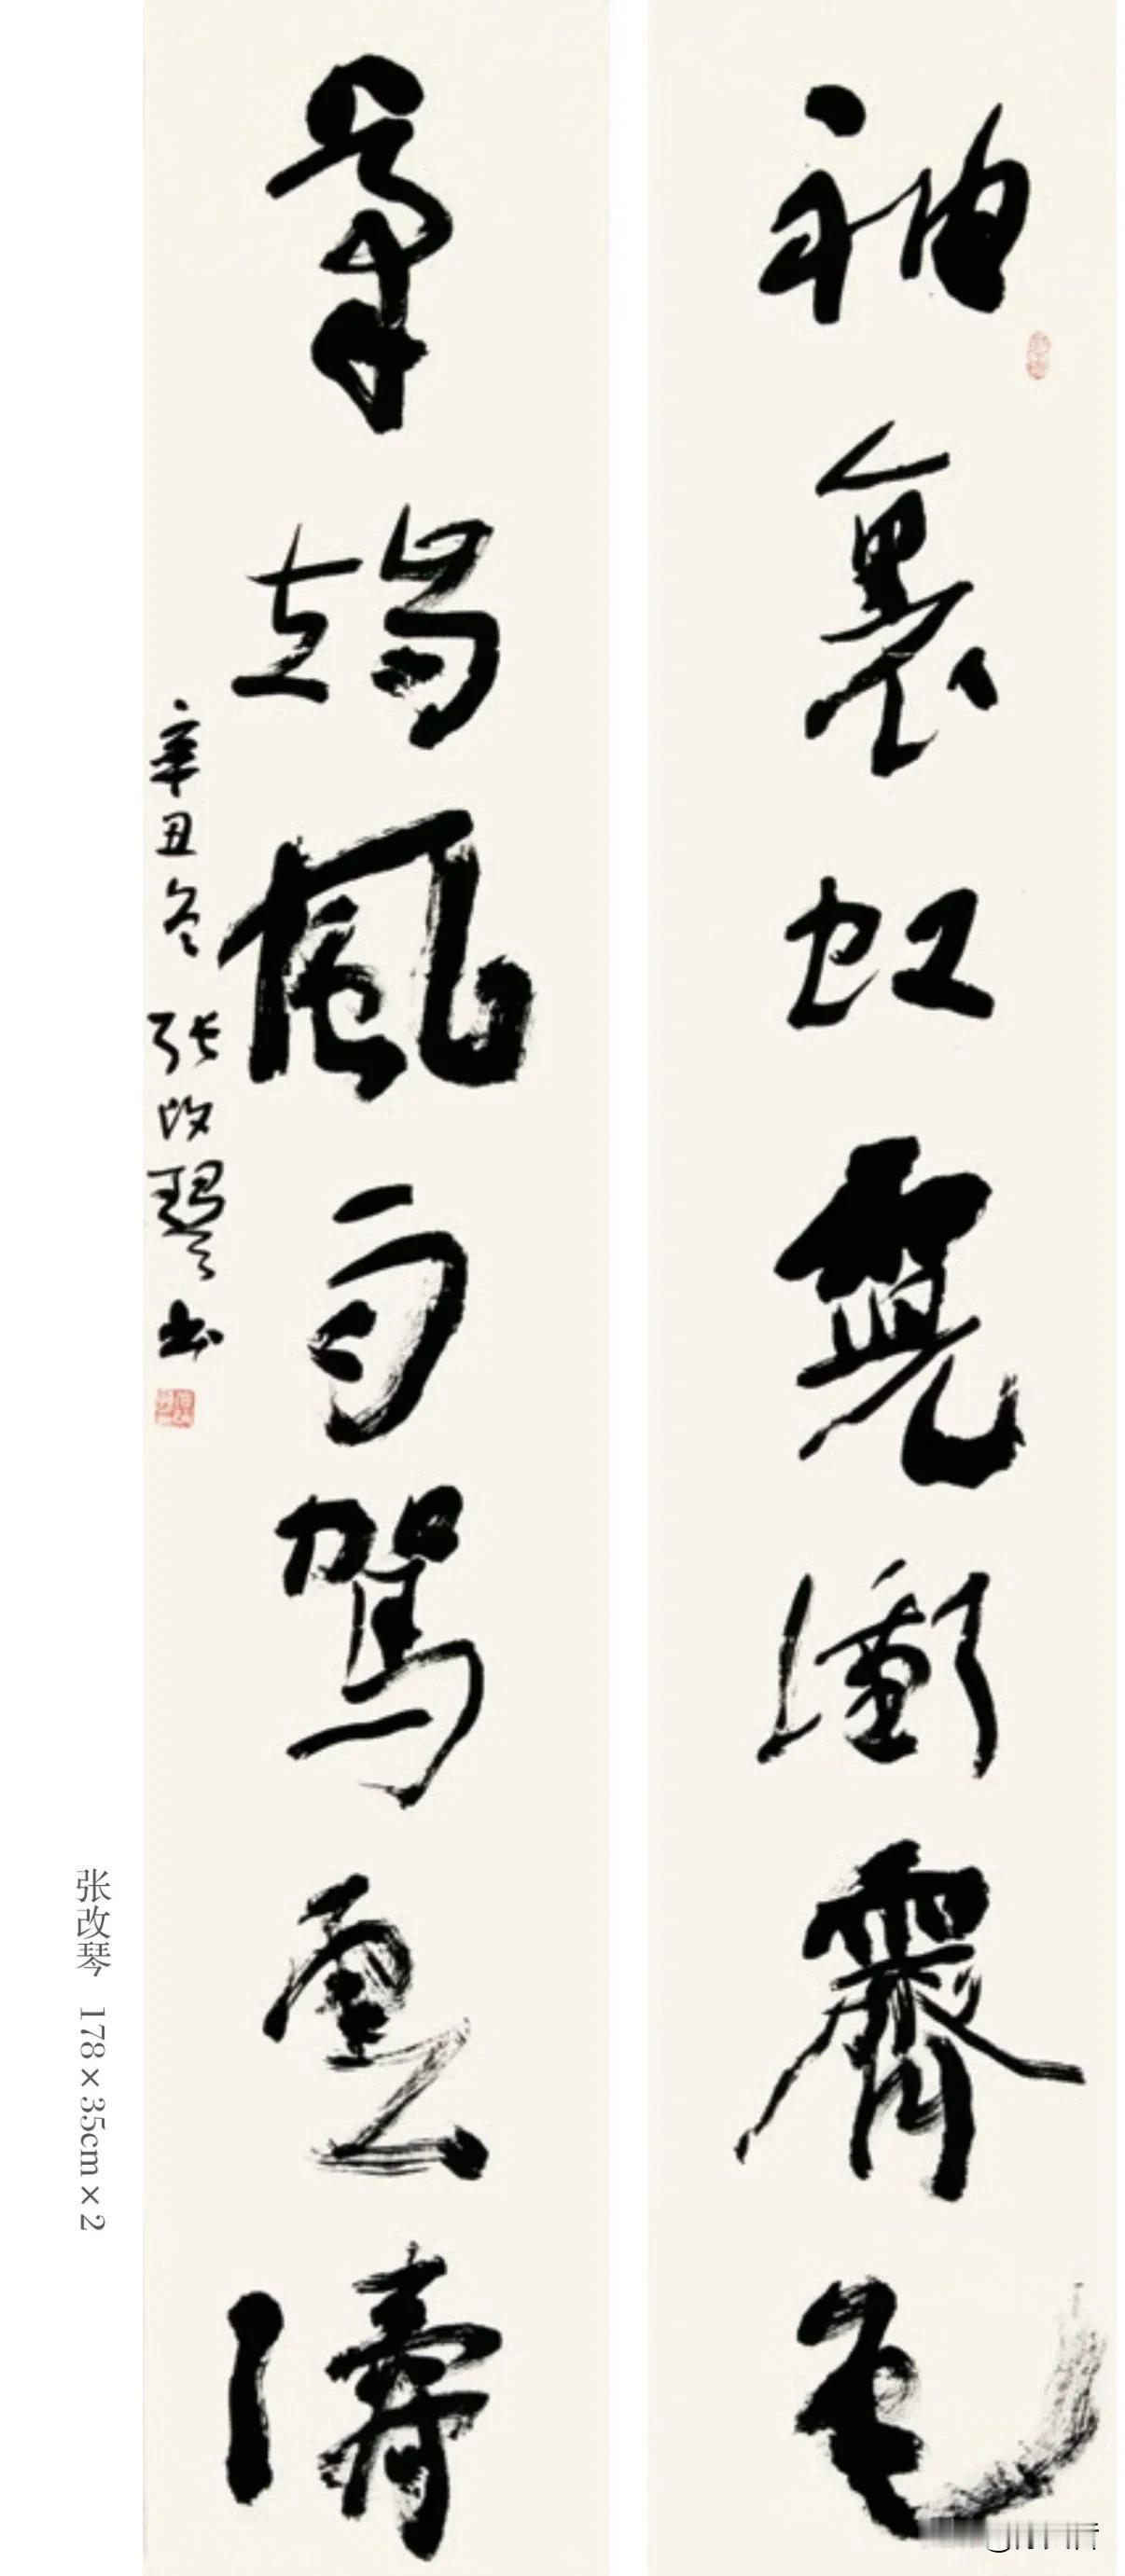 袖裏虹霓衝霽色
筆端風雨駕雲濤
辛丑冬 张改琴书
张改琴 178×35cm×2